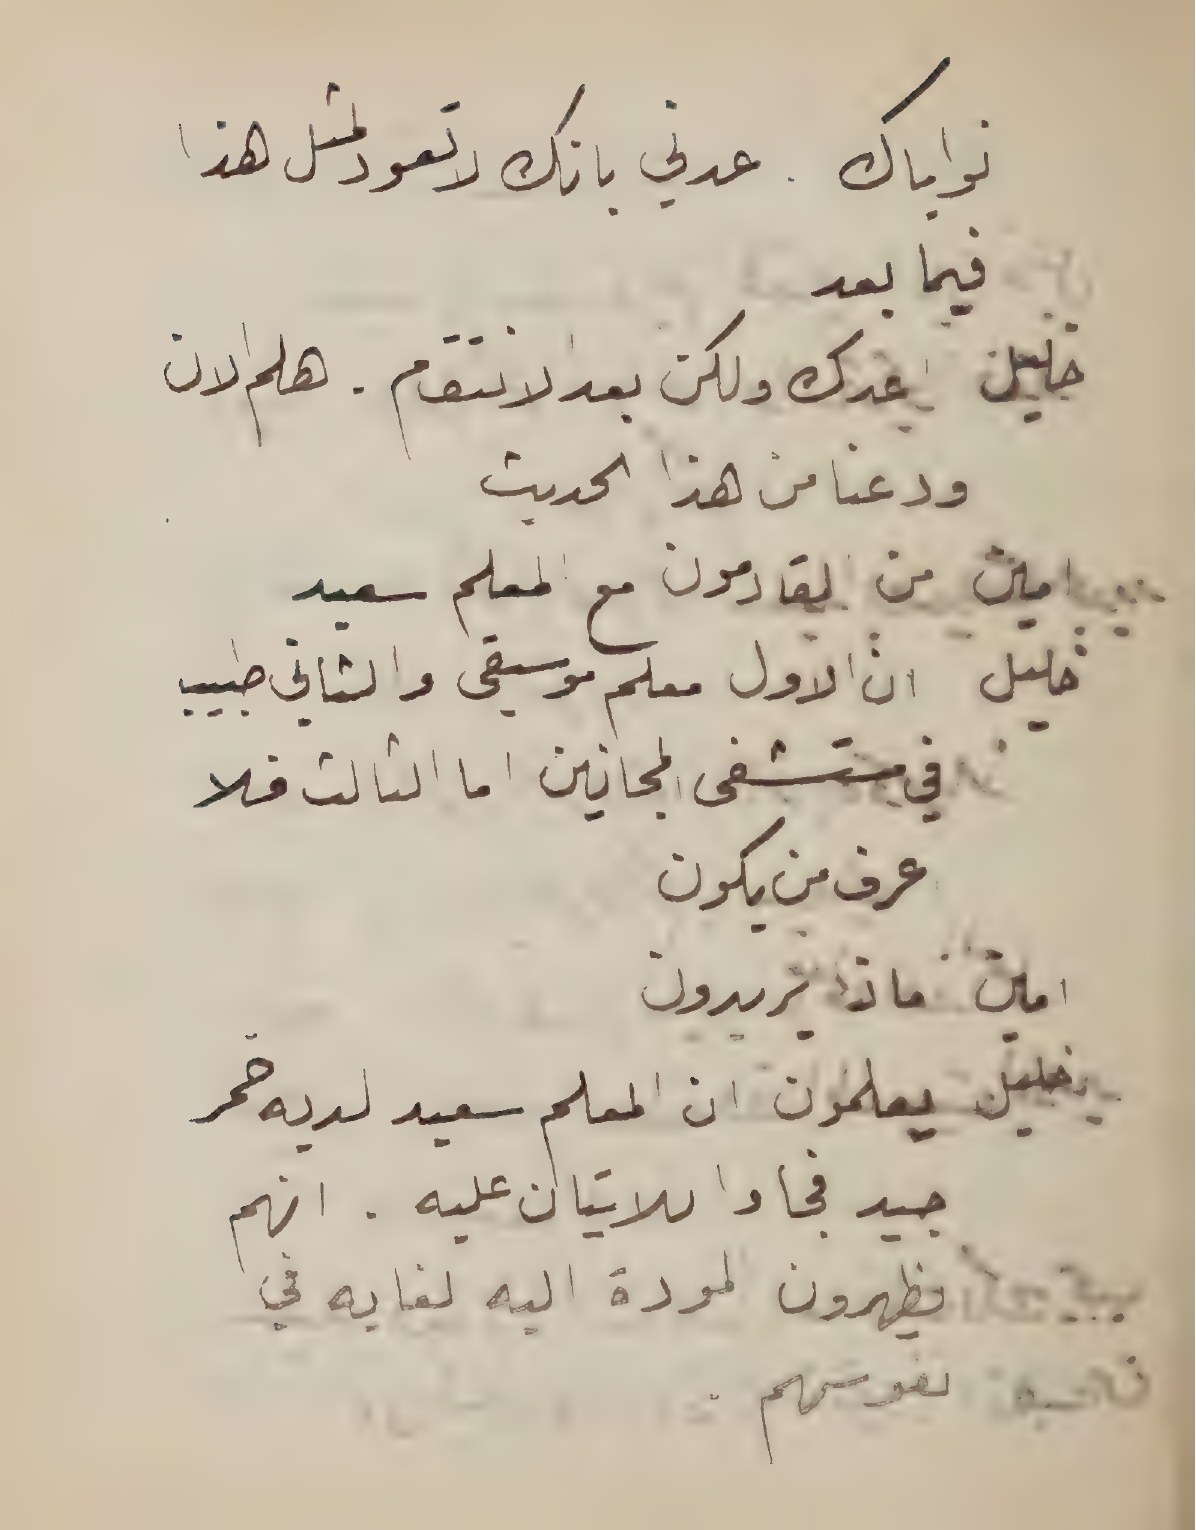 نواياك . عدني بانك لا تعود لمثل هذا
فيما بعد
خليل اعدك ولكن بعد الانتقام . هلم الان
ودعنا من هذا الحديث
امين من القادمون مع المعلم سعيد
خليل ان الاول معلم موسيقى والثاني طبيب
في مستشفى المجانين اما الثالث فلا
اعرف من يكون
امين ماذا يريدون
خليل يعلمون ان المعلم سعيد لديه خمر
جيد فجاءوا للاتيان عليه . انهم
يظهرون المودة اليه لغايه في
نفوسهم .